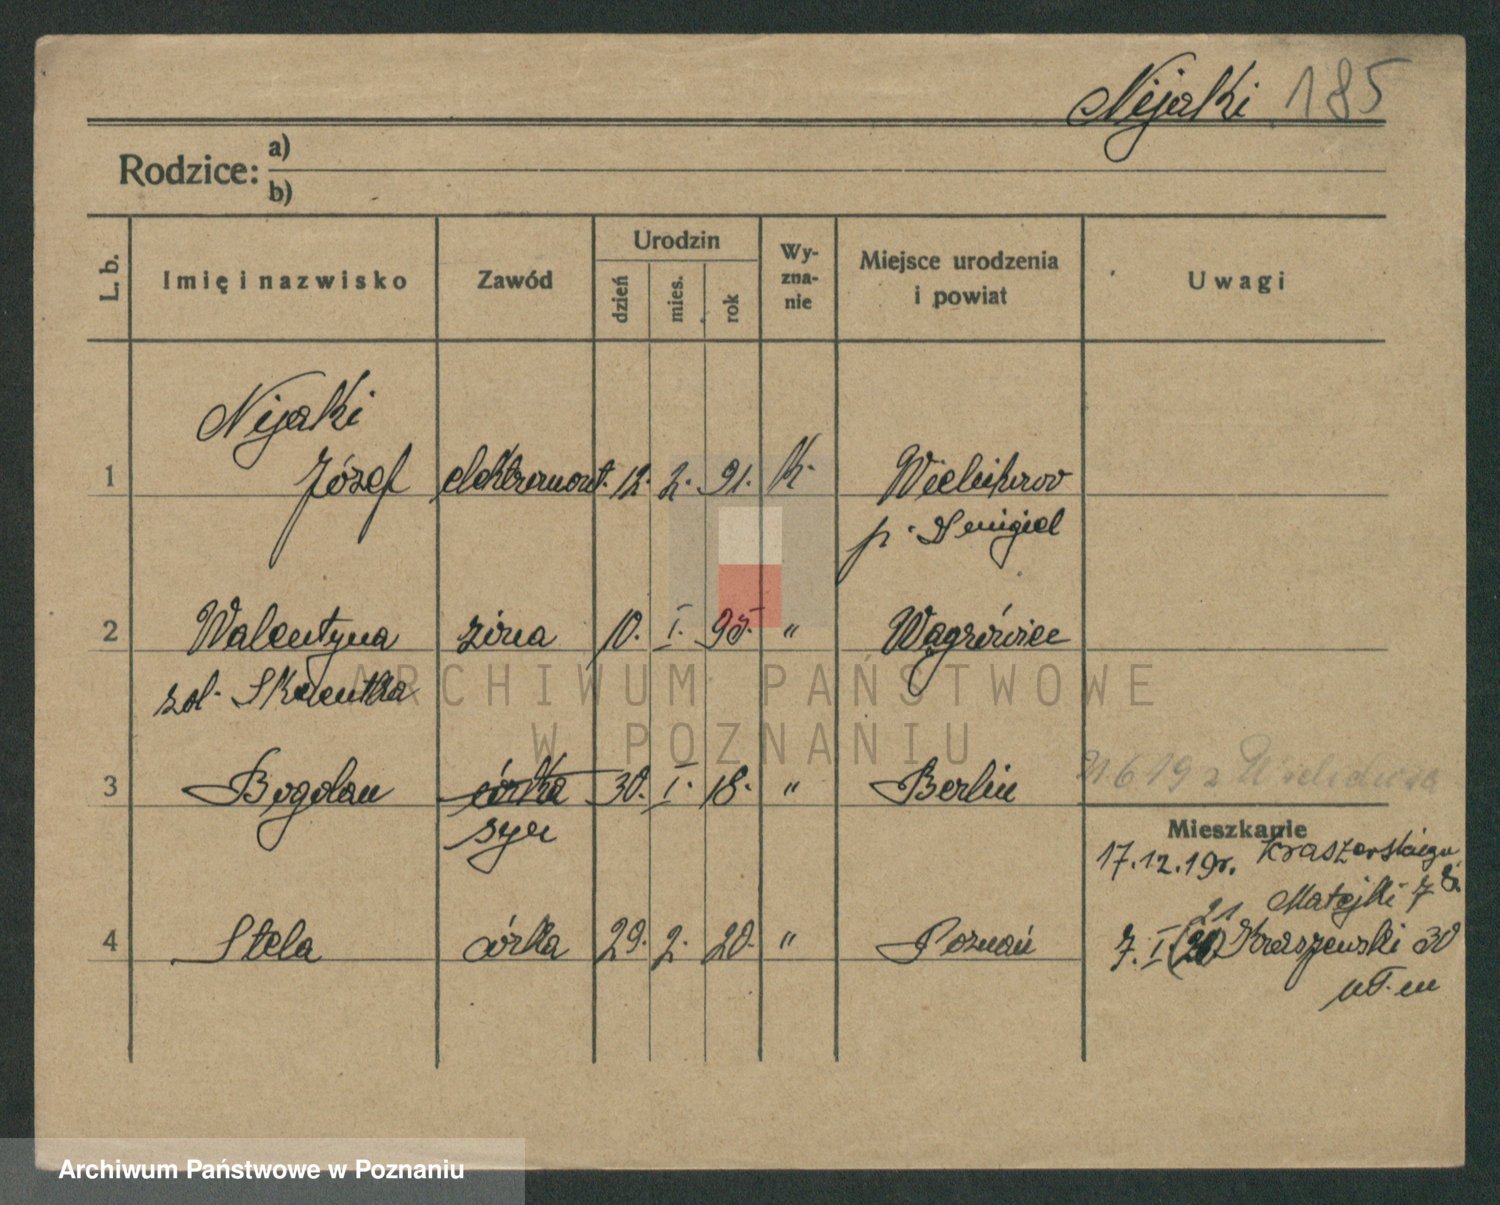 Nijaki 185
Rodzice: a)
b)
L. b.
Imię i nazwisko
Zawód
Urodzin
dzień
mies.
rok
Wy-
zna-
nie
Miejsce urodzenia
i powiat
Uwagi
Nijaki
1 Józef elektromont. 12. 2. 91. k.
p. Śmigiel
2 Walentyna żona 10. I. 95. " Wągrówiec
zol.
3 Bogdan córka 30. I. 18. " Berlin 21.6.19 z
syn
Mieszkanie
17.12.19r. Kraszewskiego
21 Matejki 7
4 Stela córka 29. 2. 20. " Poznań 7. I (20) Kraszewski 30
wł. m
ARCHIWUM PAŃSTWOWE
W POZNANIU
Archiwum Państwowe w Poznaniu